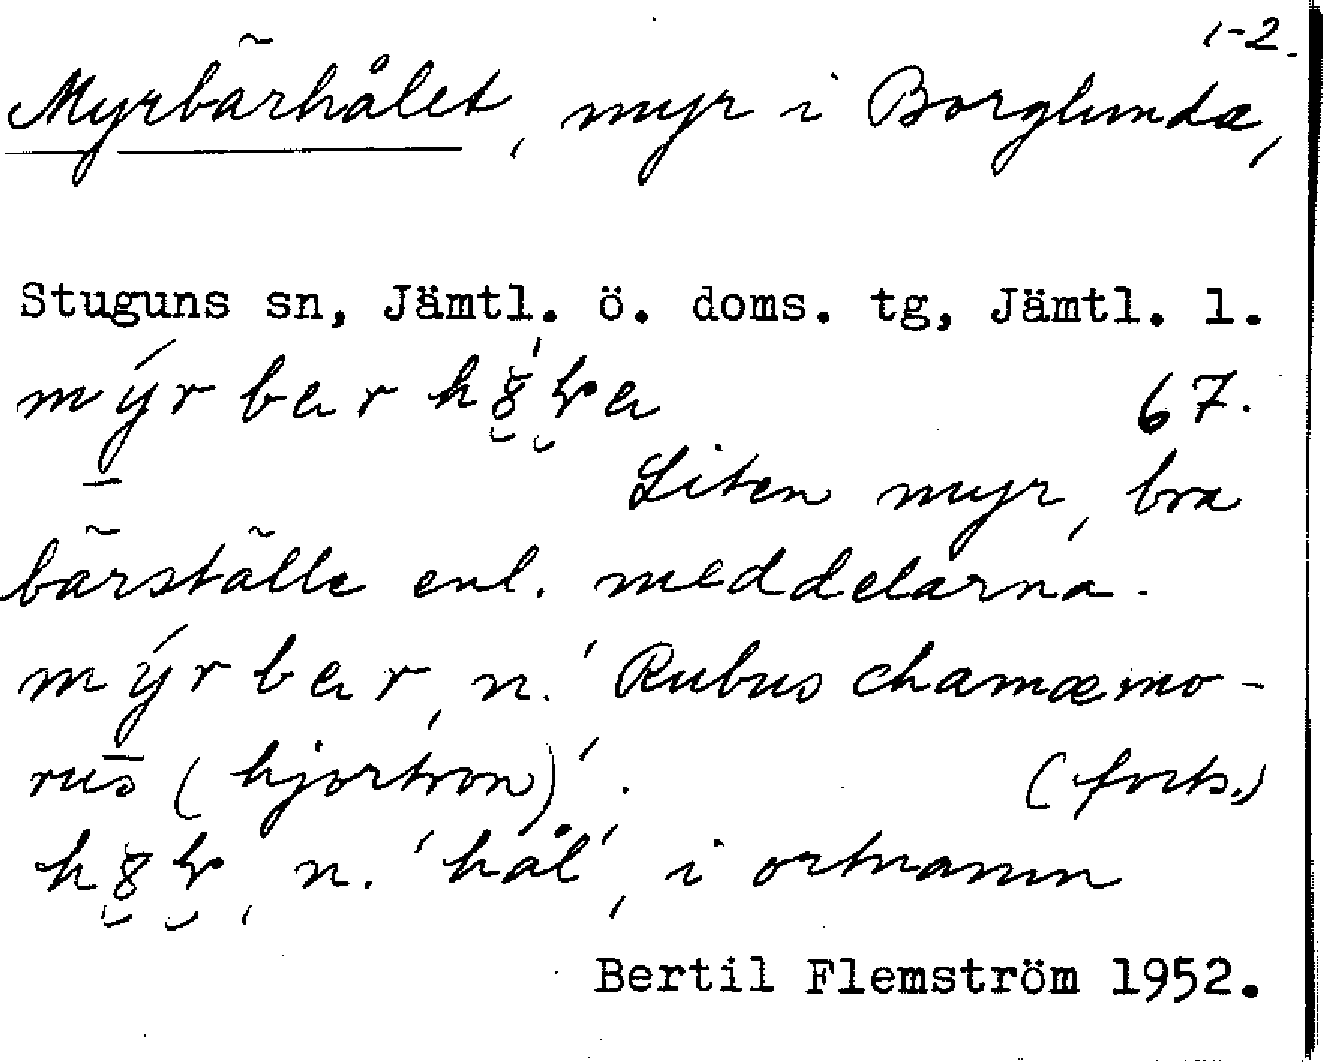 1-2.
Myrbärhålet, myr i Borglunda,
Stuguns sn, Jämtl. ö. doms. tg, Jämtl. l.
67.
Liten myr, bra
bärställe enl. meddelarna.
n. 'Rubus chamæmo-
rus (hjortron)'. (forts.)
n. 'hål', i ortnamn
Bertil Flemström 1952.